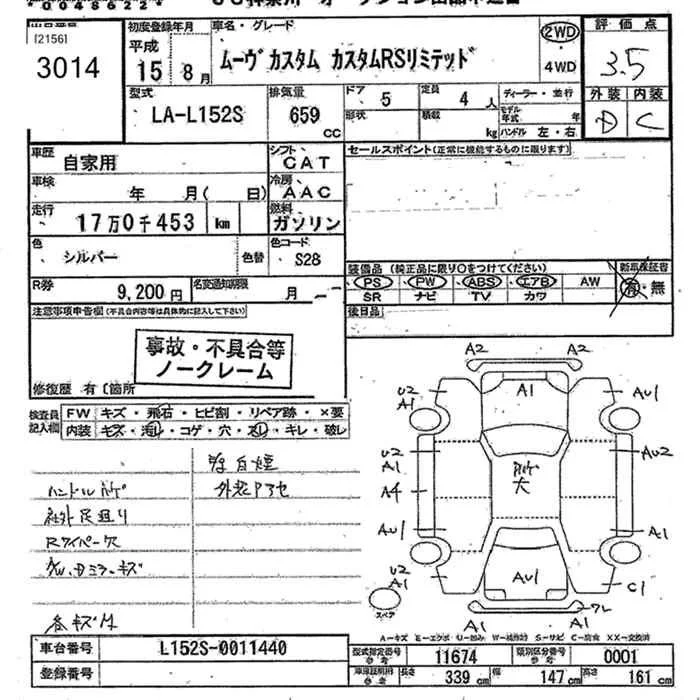 [2156]
3014
初度登録年月
平成
15年 8月
車名・グレード
ムーヴ カスタム カスタムRSリミテッド
2WD
・
4WD
評価点
3.5
外装 内装
D C
型式
LA-L152S
排気量
659
CC
ドア
5
定員
4人
形状
積載
kg
ディーラー・並行
モデル年式 年
ハンドル 左・右
車歴
自家用
シフト
CAT
車検
年 月( 日)
冷房
AAC
走行
17万0千453
km
燃料
ガソリン
色
シルバー
色替
色コード
S28
R券
9,200円
名変通知期限
月
セールスポイント(正常に機能するものに限ります)
装備品 (純正品に限り○をつけてください)
PS ・ PW ・ ABS ・ エアB ・ AW
SR ナビ TV カワ
新車保証書
有・無
後日品
注意事項申告欄(不具合内容等は具体的に記入して下さい)
事故・不具合等
ノークレーム
修復歴 有〔箇所
検査員
記入欄
FW キズ・飛石・ヒビ割・リペア跡・×要
内装 キズ・汚レ・コゲ・穴・スレ・キレ・破レ
白煙
ハンドル
社外足廻り
Rワイパー欠
ミラーキズ
各キズ
A2 A2
U2
A1
A1
AU1
U2
A1
AU2
A4
AU1
A1
AU1
U2
A1
C1
A2
スペア
A…キズ E…エクボ U…凹み W…補修跡 S…サビ C…腐食 XX…交換済
車台番号
L152S-0011440
登録番号
型式指定番号
参考
11674
類別区分番号
参考
0001
車庫証明用
参考
長さ
339 cm
幅
147 cm
高さ
161 cm